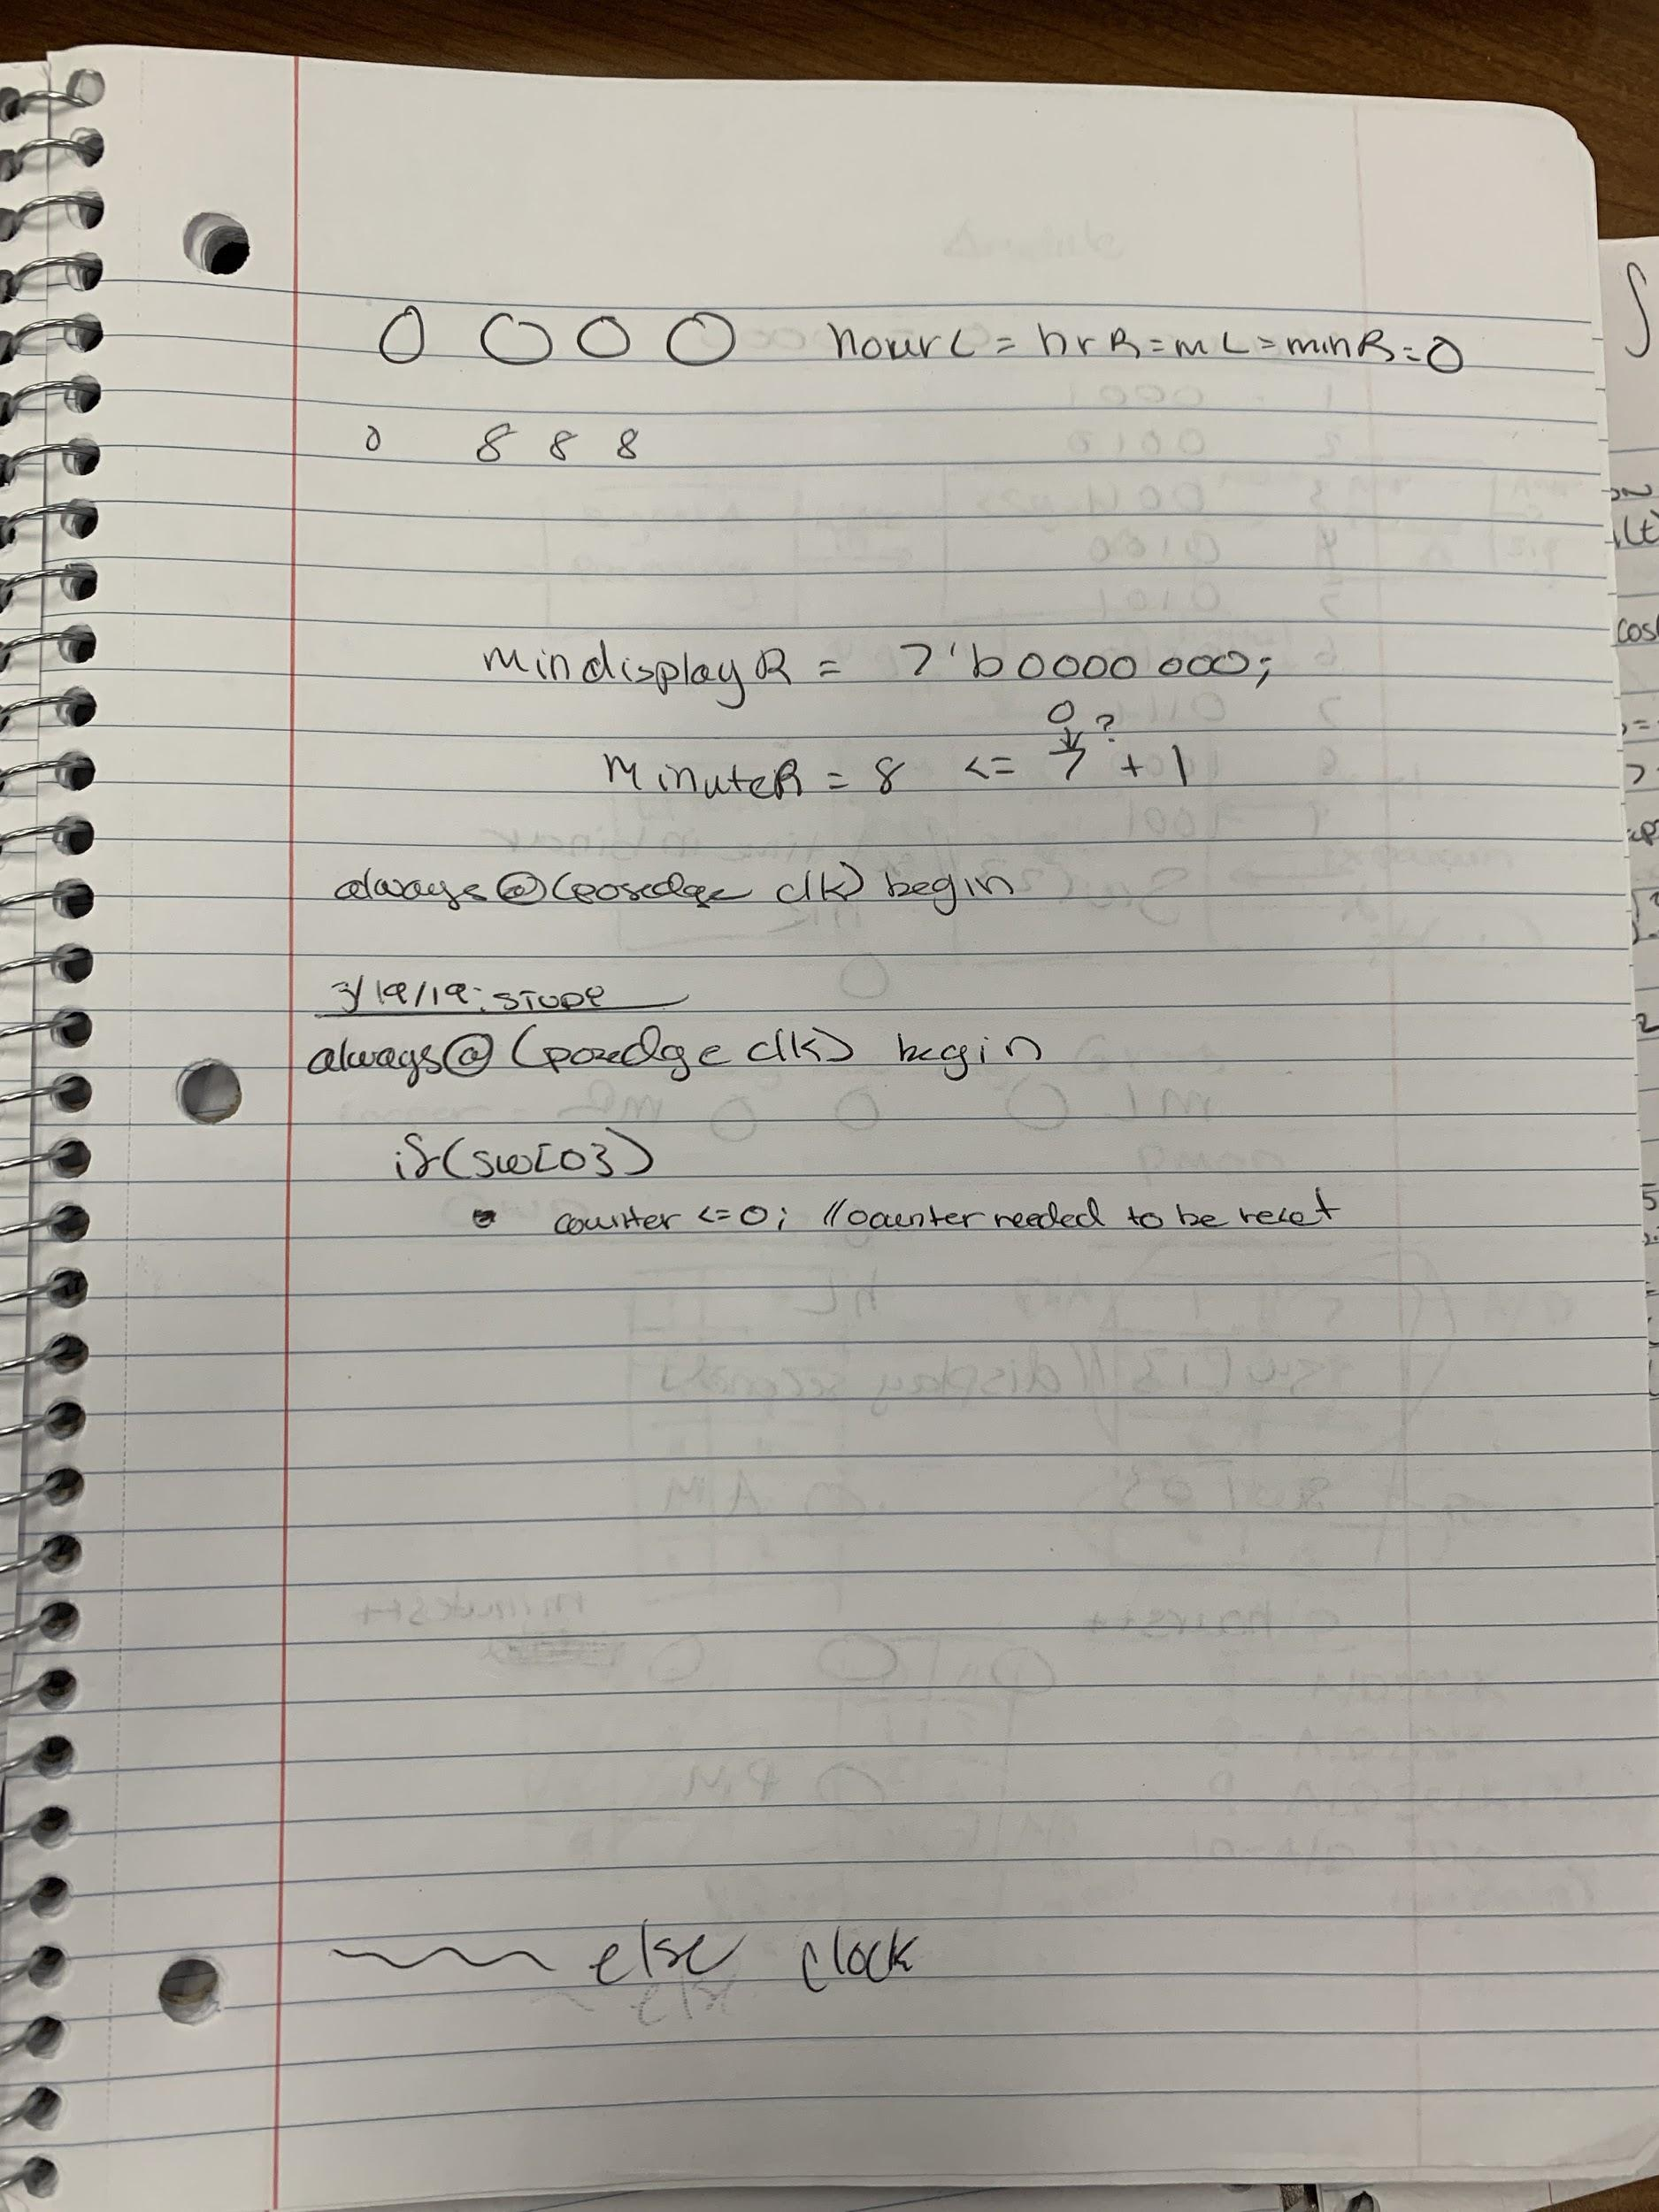 0 0 0 0 hourL = hrR = mL = minR = 0
0 8 8 8
mindisplayR = 7'b0000000;
0 ?
minuteR = 8 <= 7 + 1
always@(posedge clk) begin
3/19/19:
always@(posedge clk) begin
if(sw[0])
counter <= 0; //counter needed to be reset
else clock